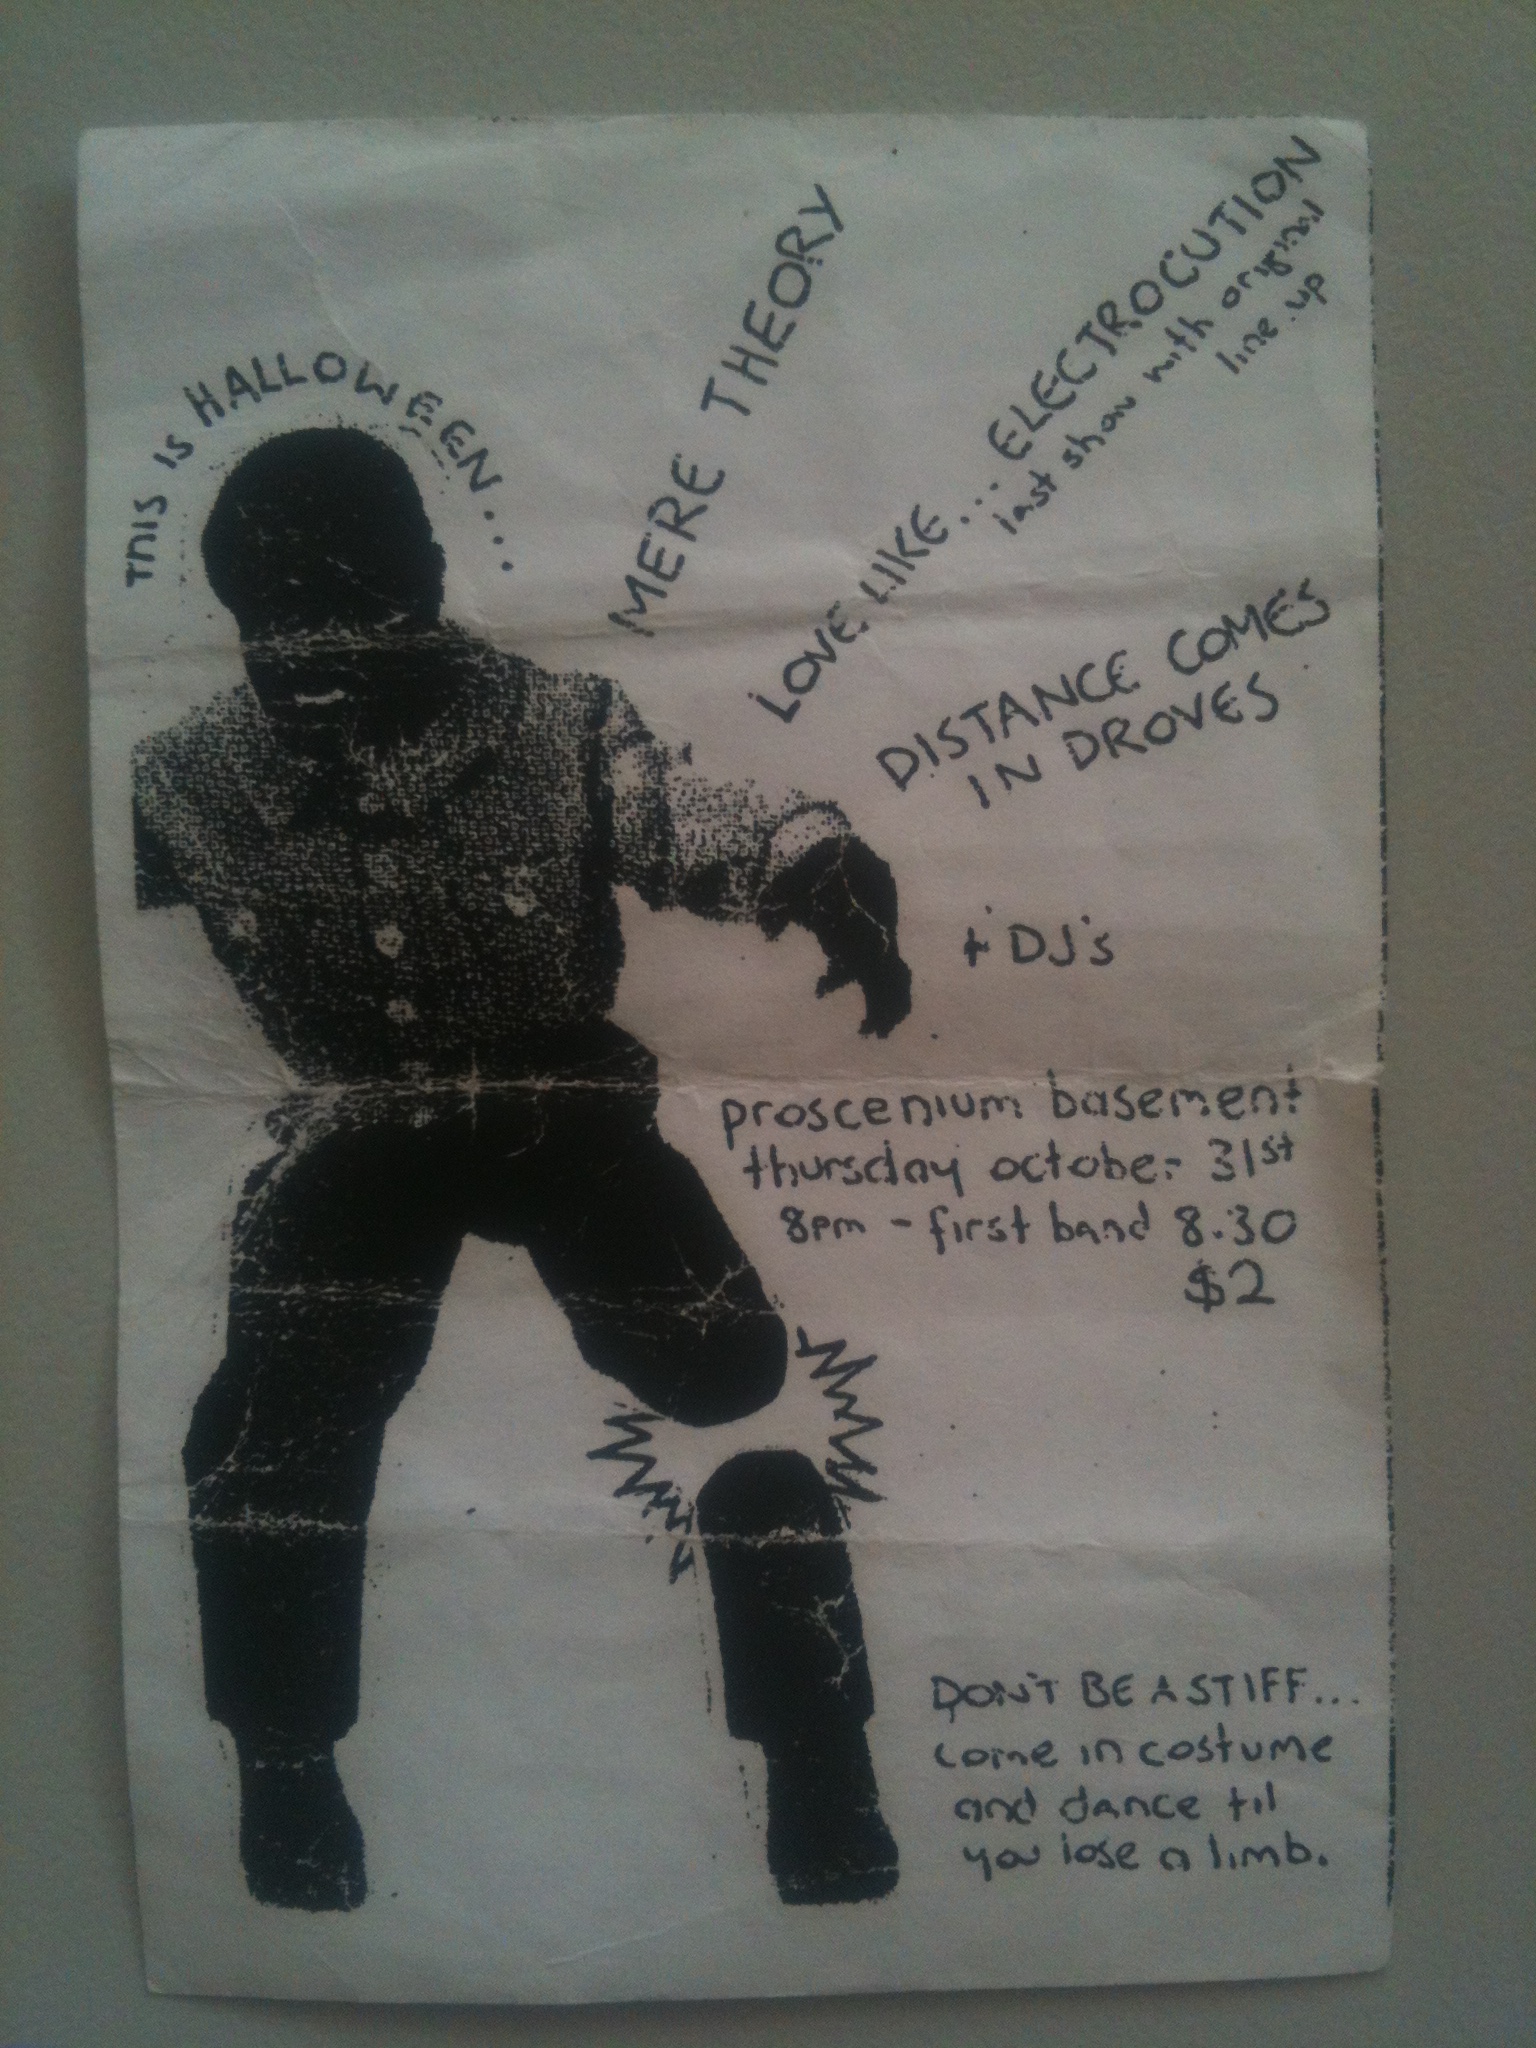 THIS IS HALLOWEEN...
MERE THEORY
LOVE LIKE... ELECTROCUTION
last show with original
line.up
DISTANCE COMES
IN DROVES
+ DJ's
proscenium basement
thursday october 31st
8pm - first band 8.30
$2
DON'T BE A STIFF...
come in costume
and dance til
you lose a limb.